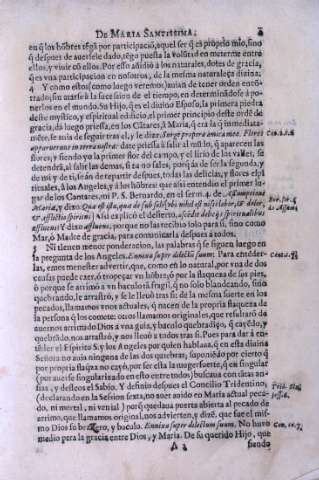 DE MARIA SANTISSIMA; 2
en q̃ los hõbres tẽgã por participació, aquel ser q̃ es proprio mio, sino
q̃ despues de aversele dado, tẽgo puesta la volũtad en meterme entre
ellos, y vivir cõ ellos. Por esso añidió a los naturales, dotes de gracia,
q̃ es una participacion en nosotros, de la mesma naturaleza divina.
4 Y como estos (como luego veremos) avian de tener orden encõ-
trado; sin atarse à la succession de el tiempo, en determinãdose à po-
nerlos en el mundo. Su Hijo, q̃ es el divino Esposo, la primera piedra
deste mystico, y espiritual edificio, el primer principio deste ordẽ de
gracia, dà luego priessa, en los Cãtares, à Maria, q̃ era la q̃ inmediata-
mẽte, se avia de seguir tras el, y le dize. Surge propera amica mea. Flores Cant. 2. n. 12.
apparuerunt in terra nostra: date priessa à salir al mũdo, q̃ aparecen las
flores; y siendo yo la primer flor del campo, y el lirio de los valles, si te
detendrá, al salir las demas, si tu no sales, porque â de ser la segunda, y
de mi y de ti, ãn de repartir despues, todas las delicias, y flores espi-
rituales, à los Angeles, y à los hõbres: que assi entendio el primer lu-
gar de los Cantares, mi P. S. Bernardo, en el serm. 4. de Assumptione
Mariæ, y dixo
affluens; porque no las recibio solo para si, sino como
Mar, ô Madre de gracia, para comunicarla despues à todos.
5 Ni tienen menor ponderacion, las palabras q̃ se siguen luego en
la pregunta de los Angeles. Ennixa super delectũ suum. Para entẽder-
las, emos menester advertir, que, como en lo natural, por una de dos
causas puede caer, ò tropezar un hõbre, ò por la flaqueza de sus pies,
ò porque se arrimò a un baculo tã fragil, q̃ no solo blandeando, sino
quebrando, le arrastró, y se le llevò tras si: de la mesma suerte en los
pecados, llamamos unos actuales, q̃ nacen de la propria flaqueza de
la persona q̃ los comete: otros llamamos originales, que resultarõ de
avernos arrimado Dios a una guia, y baculo quebradiço, q̃ cayẽdo, y
quebrãdo, nos arrastró, y nos llevó a todos tras si. Pues para dar à en-
tẽder el Espiritu S. y los Angeles por quien hablava, q̃ en esta divina
Señora no avia ninguna de las dos quiebras; suponiẽdo por cierto q̃
por propria flaqza no cayò, por ser esta la muger fuerte, q̃ en singular
(por averse singularizado en esto entre todos) buscava con tãtas an-
sias, y desseos el Sabio. Y definió despues el Concilio Tridentino,
(declarando en la Session sexta, no aver avido en Maria actual peca-
do, ni mortal, ni venial) porq̃ quedava puerta abierta al pecado de
arrimo, que llamamos original, nos advierten, y dizẽ, que fue el mis-
mo Dios so braço, y baculo. Ennixa super dilectum suum. No huvo
medio para la gracia entre Dios, y Maria. De su querido Hijo, que
A 2
siendo